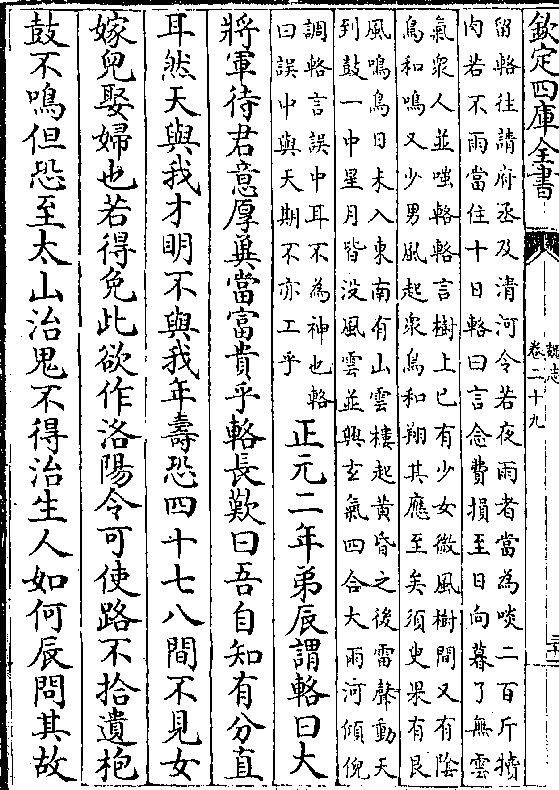 欽定四庫全書
魏志
卷二十九
留輅往請府丞及清河令若夜雨者當為啖二百斤犢
肉若不雨當住十日輅曰言念費損至日向暮了無雲
氣衆人並嗤輅輅言樹上已有少女微風樹間又有隂
鳥和鳴又少男風起衆鳥和翔其應至矣須臾果有艮
風鳴鳥日未入東南有山雲樓起黃昏之後雷聲動天
到鼓一中星月皆没風雲並興玄氣四合大雨河傾倪
調輅言誤中耳不為神也輅
曰誤中與天期不亦工乎
正元二年弟辰謂輅曰大
將軍待君意厚冀當富貴乎輅長歎曰吾自知有分直
耳然天與我才明不與我年壽恐四十七八間不見女
嫁兒娶婦也若得免此欲作洛陽令可使路不拾遺枹
鼓不鳴但恐至太山治鬼不得治生人如何辰問其故